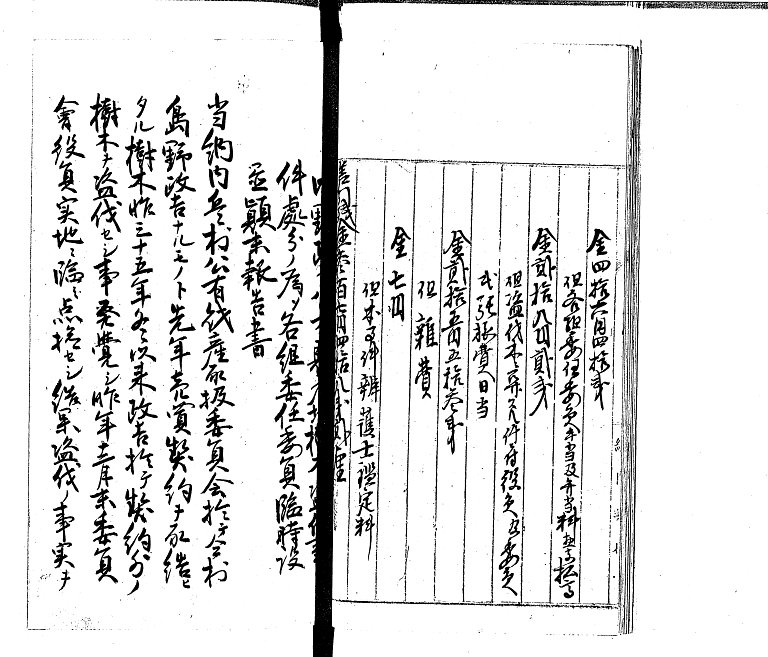 金四拾六円四拾銭
但各組委任委員手当及弁当料
金貳拾八円貳銭
但盗伐木 件ニ付役員及委員
出張旅費日当
金貳拾五円五拾参銭
但雜費
金七円
但本事件辨護士鑑定料
件處分ノ為メ各組委任委員臨時設
置顛末報告書
当納内兵村公有財産取扱委員会於テ仝村
島野政吉ナルモノト先年売買契約ヲ取結ヒ
タル樹木昨三十五年冬以来政吉於テ契約外ノ
樹木ヲ盗伐セシ事発覚シ昨年十二月末委員
會役員実地ニ臨ミ点検セシ結果盗伐ノ事実ヲ